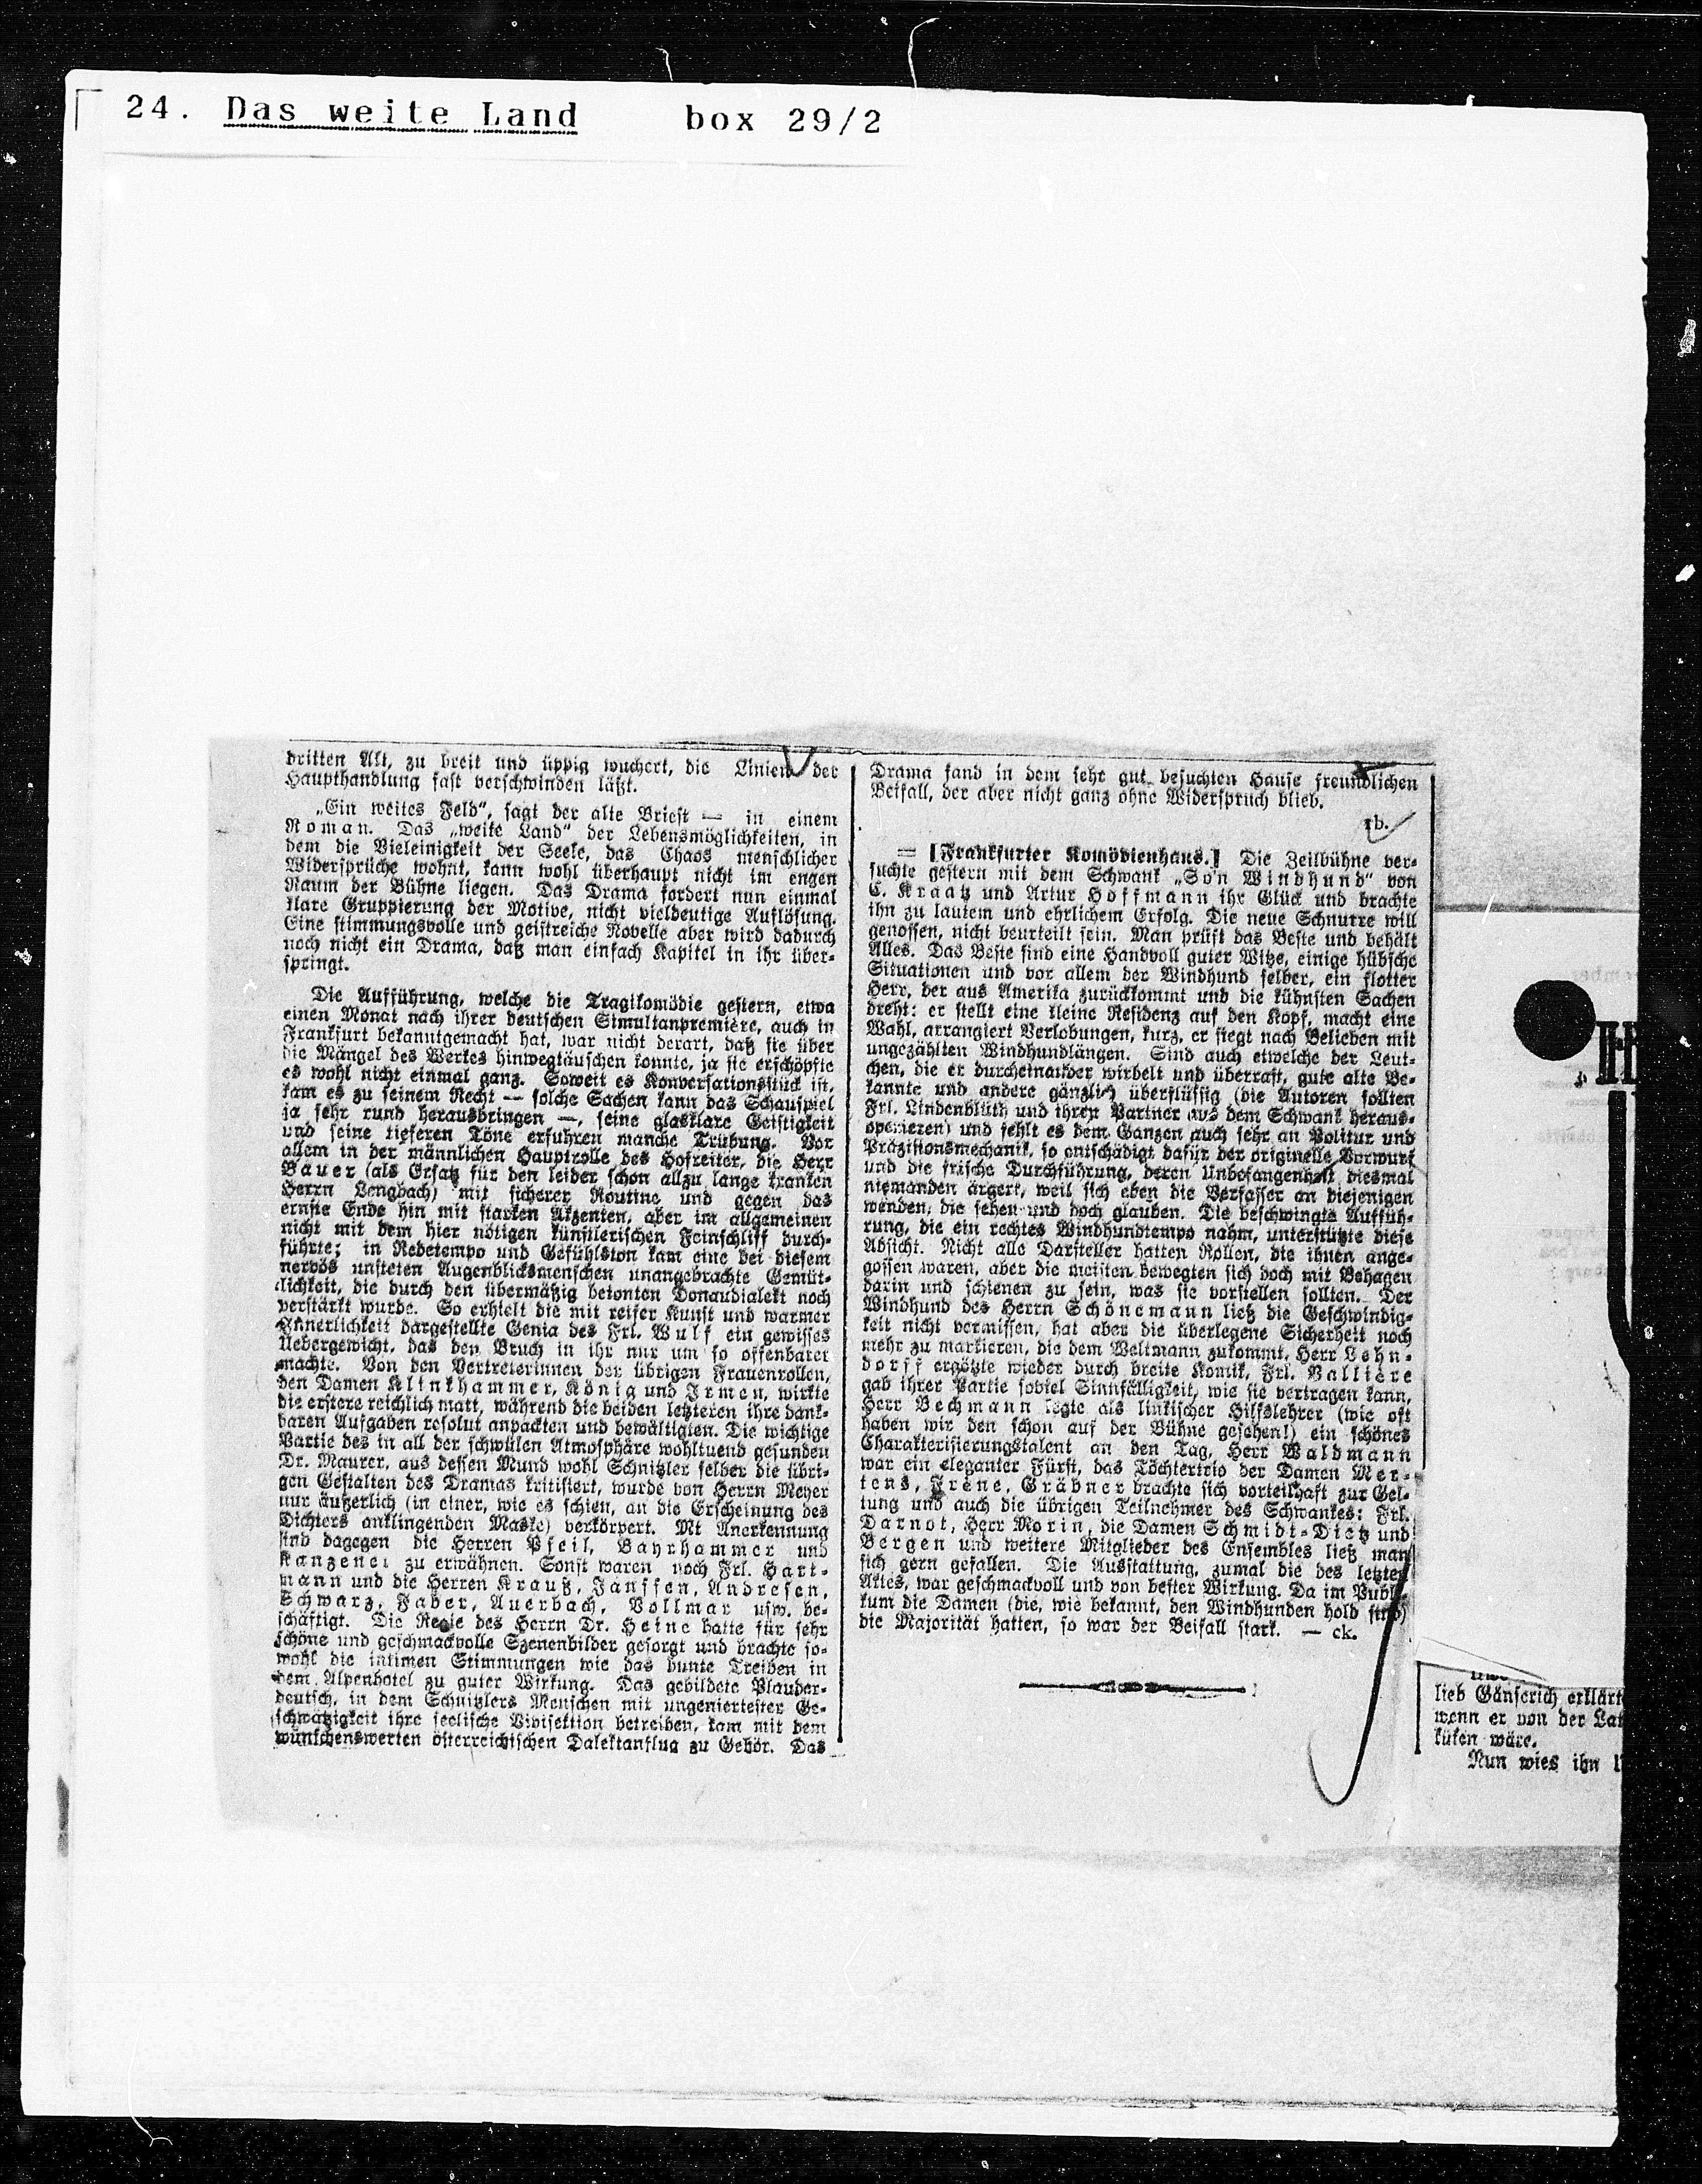 24. Das weite Land box 29/2
dritten Akt, zu breit und üppig wuchert, die Linien der
Haupthandlung fast verschwinden läßt.
„Ein weites Feld“, sagt der alte Briest — in einem
Roman. Das „weite Land“ der Lebensmöglichkeiten, in
dem die Vieleinigkeit der Seele, das Chaos menschlicher
Widersprüche wohnt, kann wohl überhaupt nicht im engen
Raum der Bühne liegen. Das Drama fordert nun einmal
klare Gruppierung der Motive, nicht vieldeutige Auflösung.
Eine stimmungsvolle und geistreiche Novelle aber wird dadurch
noch nicht ein Drama, daß man einfach Kapitel in ihr über-
springt.
Die Aufführung, welche die Tragikomödie gestern, etwa
einen Monat nach ihrer deutschen Simultanpremière, auch in
Frankfurt bekanntgemacht hat, war nicht derart, daß sie über
die Mängel des Werkes hinwegtäuschen konnte, ja sie erschöpfte
es wohl nicht einmal ganz. Soweit es Konversationsstück ist,
kam es zu seinem Recht — solche Sachen kann das Schauspiel
ja sehr rund herausbringen —, seine glasklare Geistigkeit
und seine tieferen Töne erfuhren manche Trübung. Vor
allem in der männlichen Hauptrolle des Hofreiter, die Herr
Bauer (als Ersatz für den leider schon allzu lange kranken
Herrn Lengbach) mit sicherer Routine und gegen das
ernste Ende hin mit starken Akzenten, aber im allgemeinen
nicht mit dem hier nötigen künstlerischen Feinschliff durch-
führte; in Redetempo und Gefühlston kam eine bei diesem
nervös unsteten Augenblicksmenschen unangebrachte Gemüt-
lichkeit, die durch den übermäßig betonten Donaudialekt noch
verstärkt wurde. So erhielt die mit reifer Kunst und warmer
Innerlichkeit dargestellte Genia des Frl. Wulf ein gewisses
Uebergewicht, das den Bruch in ihr nur um so offenbarer
machte. Von den Vertreterinnen der übrigen Frauenrollen,
den Damen Klinkhammer, König und Irmen, wirkte
die erstere reichlich matt, während die beiden letzteren ihre dank-
baren Aufgaben resolut anpackten und bewältigten. Die wichtige
Partie des in all der schwülen Atmosphäre wohltuend gesunden
Dr. Maurer, aus dessen Mund wohl Schnitzler selber die übri-
gen Gestalten des Dramas kritisiert, wurde von Herrn Meyer
nur äußerlich (in einer, wie es schien, an die Erscheinung des
Dichters anklingenden Maske) verkörpert. Mt Anerkennung
sind dagegen die Herren Pfeil, Bayrhammer und
Kanzenel zu erwähnen. Sonst waren noch Frl. Hart-
mann und die Herren Krauß, Janssen, Andresen,
Schwarz, Faber, Auerbach, Vollmar usw. be-
schäftigt. Die Regie des Herrn Dr. Heine hatte für sehr
schöne und geschmackvolle Szenenbilder gesorgt und brachte so-
wohl die intimen Stimmungen wie das bunte Treiben in
dem Alpenhotel zu guter Wirkung. Das gebildete Plauder-
deutsch, in dem Schnitzlers Menschen mit ungeniertester Ge-
schwätzigkeit ihre seelische Vivisektion betreiben, kam mit dem
wünschenswerten österreichischen Dalektanflug zu Gehör. Das
Drama fand in dem sehr gut besuchten Hause freundlichen
Beifall, der aber nicht ganz ohne Widerspruch blieb.
rb.
= [Frankfurter Komödienhaus.] Die Zeilbühne ver-
suchte gestern mit dem Schwank „So'n Windhund“ von
C. Kraatz und Artur Hoffmann ihr Glück und brachte
ihn zu lautem und ehrlichem Erfolg. Die neue Schnurre will
genossen, nicht beurteilt sein. Man prüft das Beste und behält
Alles. Das Beste sind eine Handvoll guter Witze, einige hübsche
Situationen und vor allem der Windhund selber, ein flotter
Herr, der aus Amerika zurückkommt und die kühnsten Sachen
dreht: er stellt eine kleine Residenz auf den Kopf, macht eine
Wahl, arrangiert Verlobungen, kurz, er siegt nach Belieben mit
ungezählten Windhundlängen. Sind auch etwelche der Leut-
chen, die er durcheinander wirbelt und überrast, gute alte Be-
kannte und andere gänzlich überflüssig (die Autoren sollten
Frl. Lindenblüth und ihren Partner aus dem Schwank heraus-
operieren) und fehlt es dem Ganzen auch sehr an Politur und
Präzisionsmechanik, so entschädigt dafür der originelle Vorwurf
und die frische Durchführung, deren Unbefangenheit diesmal
niemanden ärgert, weil sich eben die Verfasser an diejenigen
wenden, die sehen und doch glauben. Die beschwingte Auffüh-
rung, die ein rechtes Windhundtempo nahm, unterstützte diese
Absicht. Nicht alle Darsteller hatten Rollen, die ihnen ange-
gossen waren, aber die meisten bewegten sich doch mit Behagen
darin und schienen zu sein, was sie vorstellen sollten. Der
Windhund des Herrn Schönemann ließ die Geschwindig-
keit nicht vermissen, hat aber die überlegene Sicherheit noch
mehr zu markieren, die dem Weltmann zukommt, Herr Lehn-
dorff ergötzte wieder durch breite Komik, Frl. Vallière
gab ihrer Partie soviel Sinnfälligkeit, wie sie vertragen kann,
Herr Bechmann legte als linkischer Hilfslehrer (wie oft
haben wir den schon auf der Bühne gesehen!) ein schönes
Charakterisierungstalent an den Tag, Herr Waldmann
war ein eleganter Fürst, das Töchtertrio der Damen Mer-
tens, Frêne, Gräbner brachte sich vorteilhaft zur Gel-
tung und auch die übrigen Teilnehmer des Schwankes: Frl.
Darnot, Herr Morin, die Damen Schmidt-Dietz und
Bergen und weitere Mitglieder des Ensembles ließ man
sich gern gefallen. Die Ausstattung, zumal die des letzten
Aktes, war geschmackvoll und von bester Wirkung. Da im Publi-
kum die Damen (die, wie bekannt, den Windhunden hold sind)
die Majorität hatten, so war der Beifall stark. — ck.
lieb Gänserich erklärt
wenn er von der
küken wäre.
Nun wies ihn